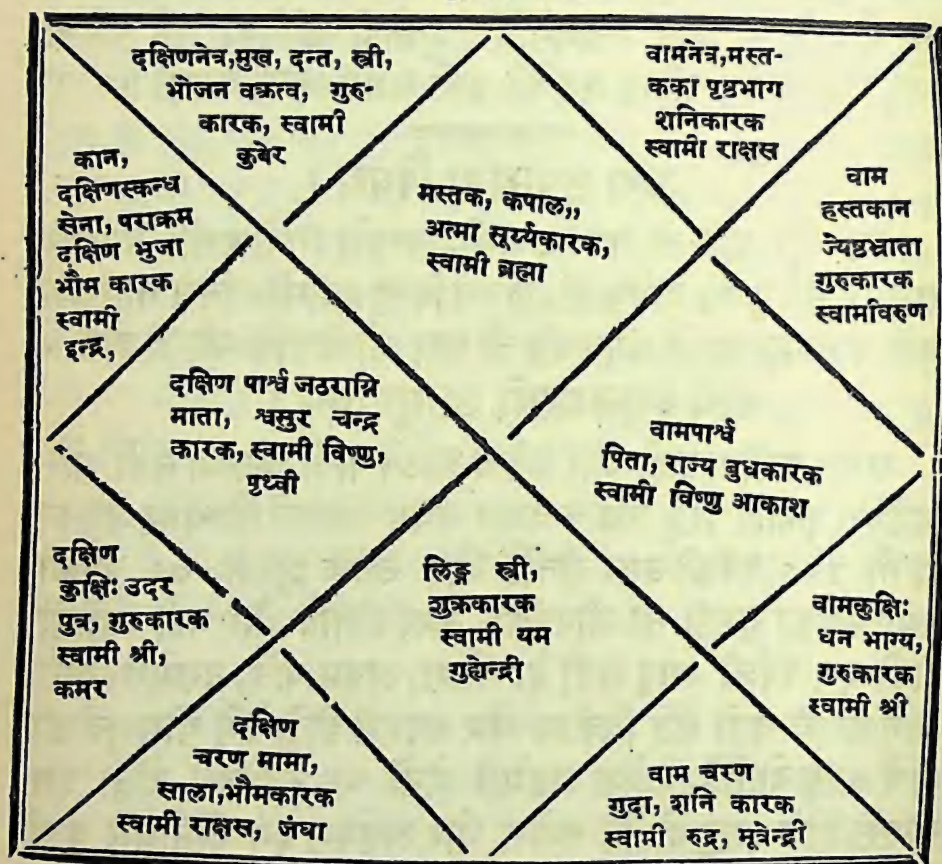 दक्षिणनेत्र,मुख, दन्त, स्त्री,
भोजन वक्रत्व, गुरु-
कारक, स्वामी
कुबेर
वामनेत्र,मस्त-
कका पृष्ठभाग
शनिकारक
स्वामी राक्षस
कान,
दक्षिणस्कन्ध
सेना, पराक्रम
दक्षिण भुजा
भौम कारक
स्वामी
इन्द्र,
मस्तक, कपाल,,
अत्मा सूर्य्यकारक,
स्वामी ब्रह्मा
वाम
हस्तकान
ज्येष्ठभ्राता
गुरुकारक
स्वामीवरुण
दक्षिण पार्श्व जठराग्नि
माता, श्वसुर चन्द्र
कारक, स्वामी विष्णु,
पृथ्वी
वामपार्श्व
पिता, राज्य बुधकारक
स्वामी विष्णु आकाश
दक्षिण
कुक्षिः उदर
पुत्र, गुरुकारक
स्वामी श्री,
कमर
लिङ्ग स्त्री,
शुक्रकारक
स्वामी यम
गुह्येन्द्री
वामकुक्षिः
धन भाग्य,
गुरुकारक
स्वामी श्री
दक्षिण
चरण मामा,
साला,भौमकारक
स्वामी राक्षस, जंघा
वाम चरण
गुदा, शनि कारक
स्वामी रुद्र, मूत्रेन्द्री